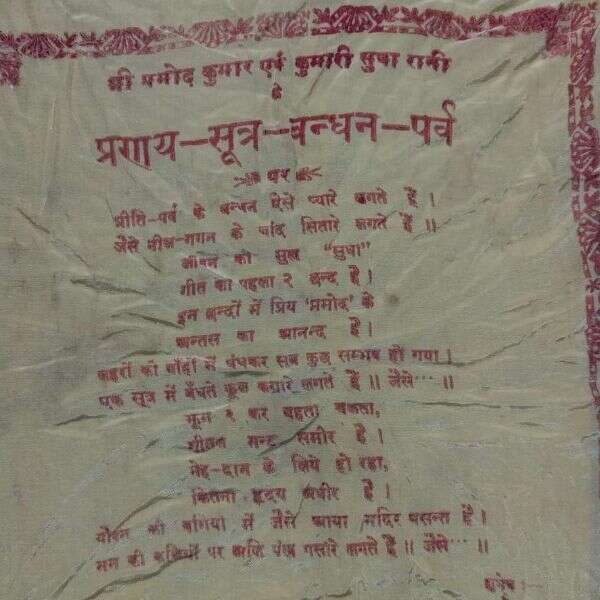 श्री प्रमोद कुमार एवं कुमारी सुधा रानी
के
प्रणय-सूत्र-बन्धन-पर्व
पर
प्रीति-पर्व के बन्धन ऐसे प्यारे लगते हैं ।
जैसे नील-गगन के चाँद सितारे लगते हैं ॥
जीवन की सुख "सुधा"
गीत का पहला २ छन्द है ।
इन छन्दों में प्रिय 'प्रमोद' के
अन्तस का आनन्द है ।
लहरों की बाँहों में बंधकर सब कुछ सम्भव हो गया ।
एक सूत्र में बँधते कूल कगारे लगते हैं ॥ जैसे··· ॥
झूम २ कर बहता चलता,
शीतल मन्द समीर है ।
नेह-दान के लिये हो रहा,
कितना हृदय अधीर है ।
यौवन की बगिया में जैसे आया मदिर बसन्त है ।
मन की कलियों पर अलि पंख पसारे लगते हैं ॥ जैसे··· ॥